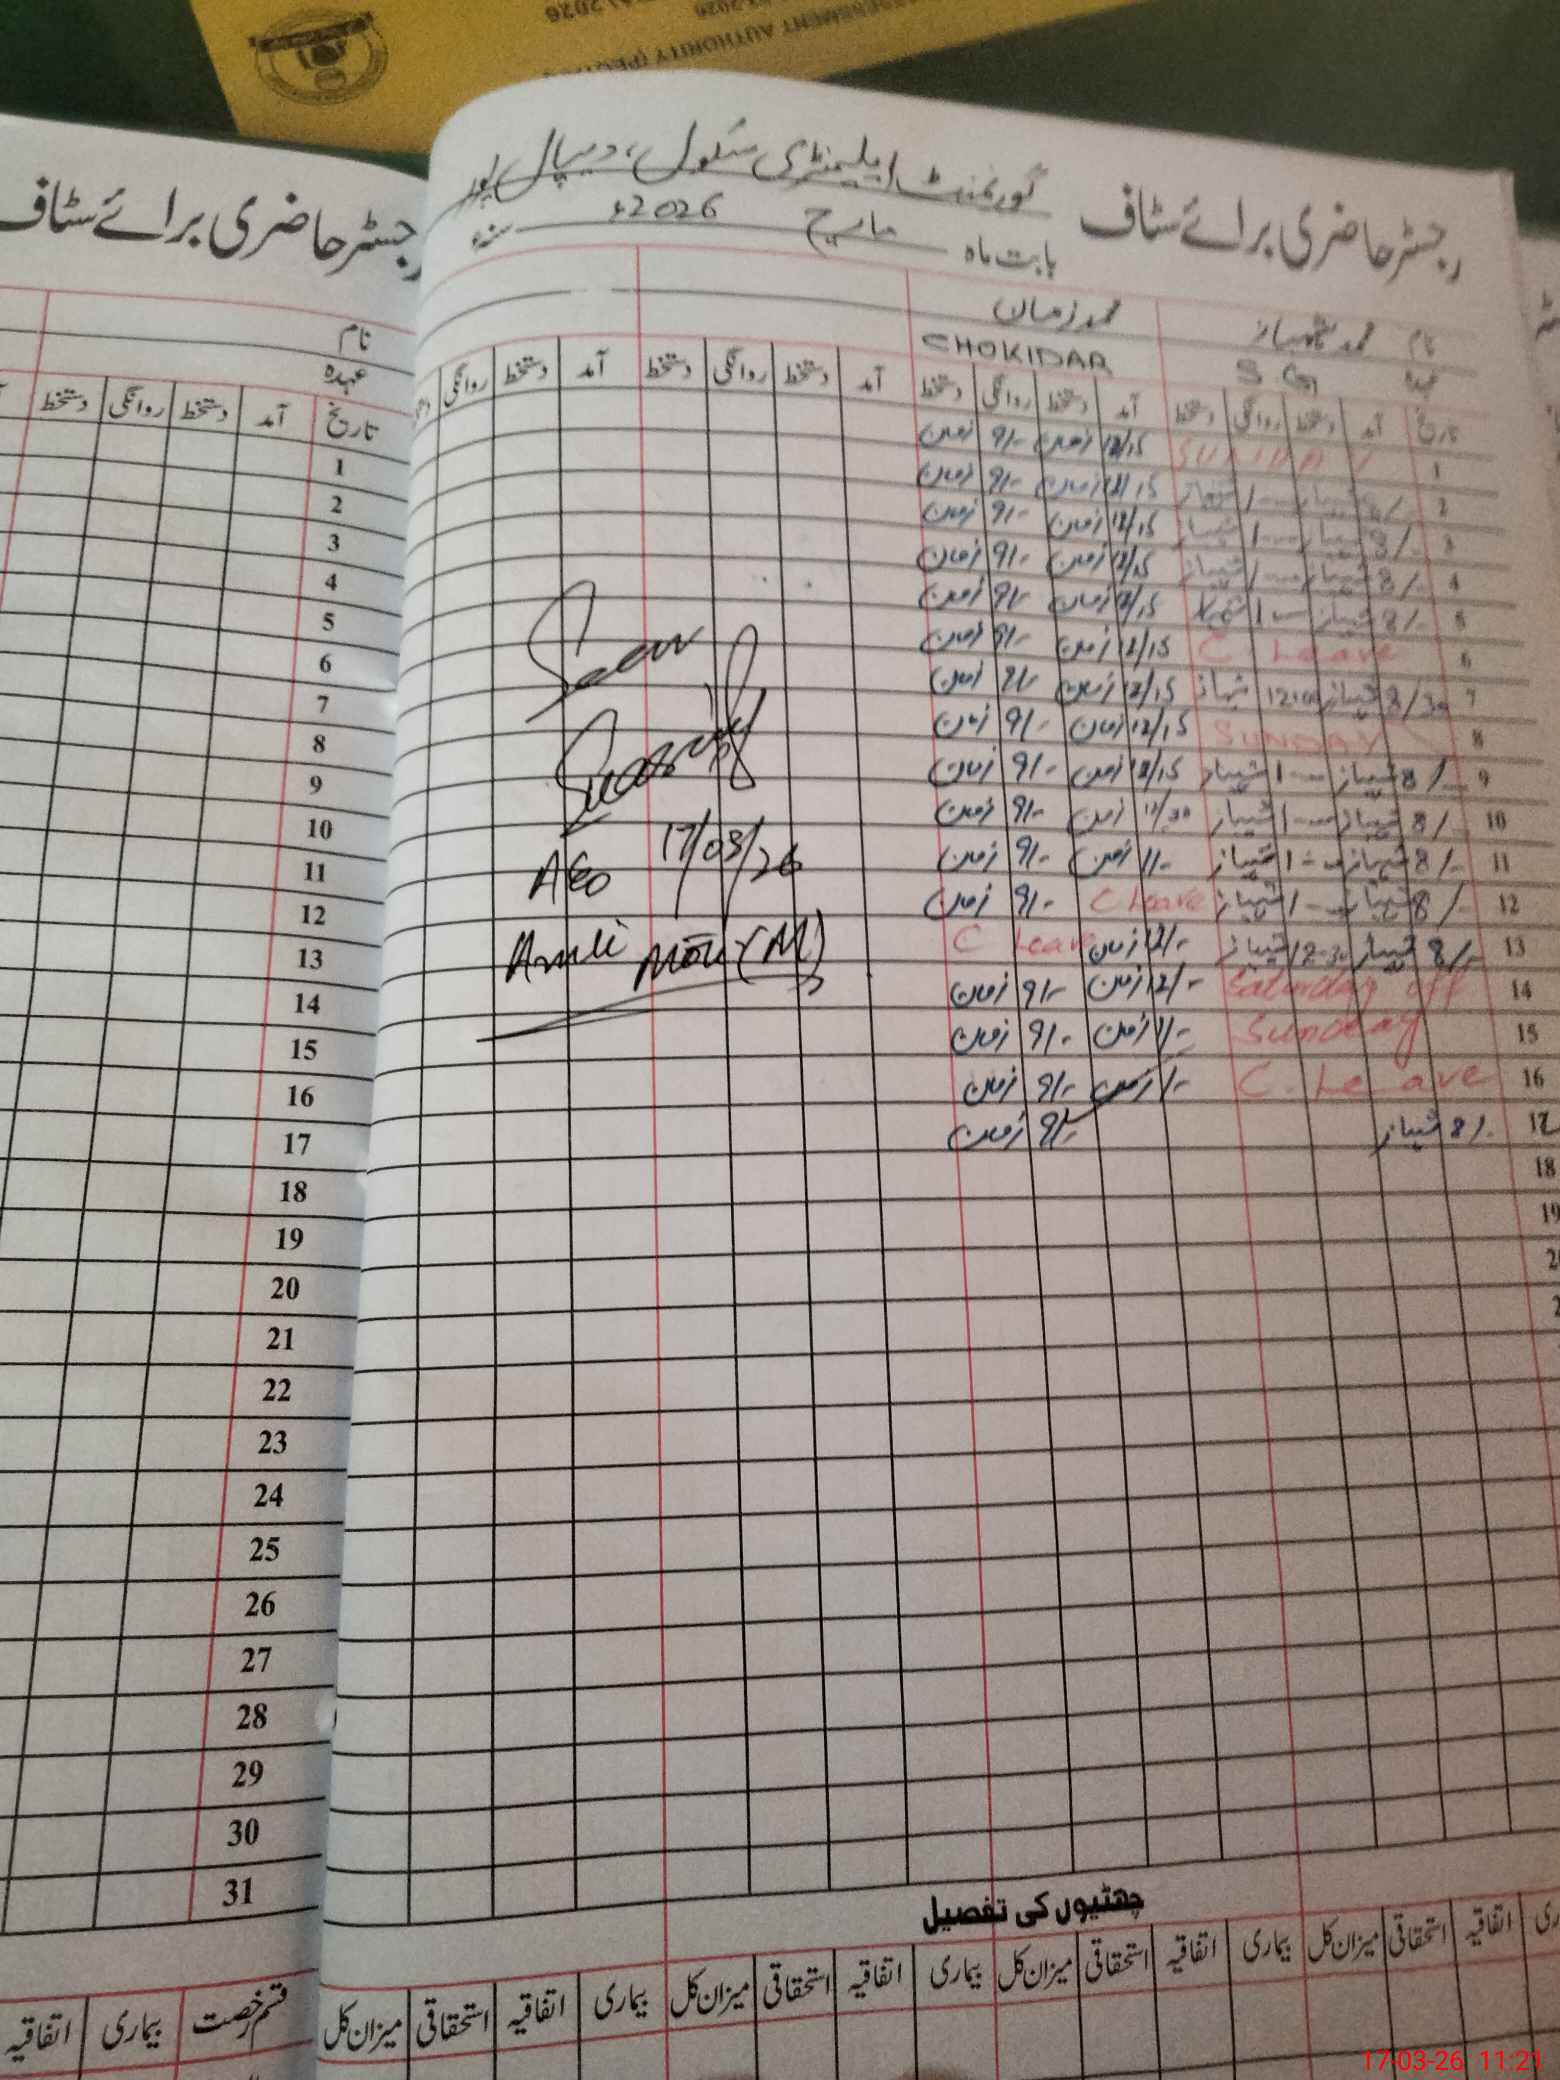 ASSESSMENT AUTHORITY
2026
رجسٹر حاضری برائے سٹاف گورنمنٹ ایلیمنٹری سکول، دیپالپور
بابت ماہ مارچ 2026ء سنہء
رجسٹر حاضری برائے سٹاف
نام محمد شہباز محمد زمان
عہدہ S.G CHOKIDAR
تاریخ آمد دستخط روانگی دستخط آمد دستخط روانگی دستخط آمد دستخط روانگی دستخط آمد دستخط روانگی
1 SUNDAY 12/15 زمان 9/- زمان
2 8/- شہباز 1 شہباز 12/15 زمان 9/- زمان
3 8/- شہباز 1 شہباز 12/15 زمان 9/- زمان
4 8/- شہباز 1 شہباز 12/15 زمان 9/- زمان
5 8/- شہباز 1 شہباز 12/15 زمان 9/- زمان
6 C. Leave 12/15 زمان 9/- زمان
7 8/30 شہباز 12:00 شہباز 12/15 زمان 9/- زمان
8 SUNDAY 12/15 زمان 9/- زمان
9 8/- شہباز 1 شہباز 12/15 زمان 9/- زمان
10 8/- شہباز 1 شہباز 11/30 زمان 9/- زمان
11 8/- شہباز 1 شہباز 11/- زمان 9/- زمان
12 8/- شہباز 1 شہباز C Leave 9/- زمان
13 8/- شہباز 12-30 شہباز 12/- زمان C Leave
14 Saturday off 12/- زمان 9/- زمان
15 Sunday 1/- زمان 9/- زمان
16 C. Leave 1/- زمان 9/- زمان
17 8/- شہباز 9/- زمان
18
19
Seen
17/03/26
AEO
نام
عہدہ
تاریخ آمد دستخط روانگی دستخط
1
2
3
4
5
6
7
8
9
10
11
12
13
14
15
16
17
18
19
20
21
22
23
24
25
26
27
28
29
30
31
چھٹیوں کی تفصیل
اتفاقیہ استحقاقی میزان کل بیماری اتفاقیہ استحقاقی میزان کل بیماری اتفاقیہ استحقاقی میزان کل بیماری اتفاقیہ استحقاقی میزان کل
قسم رخصت بیماری اتفاقیہ
17-03-26 11:21